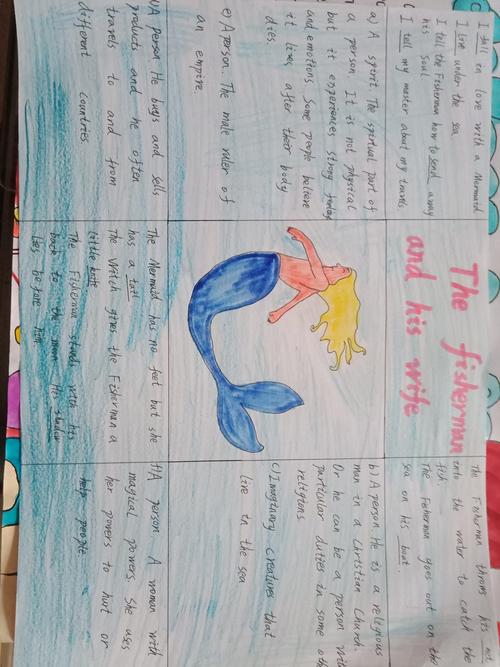 I fall in love with a Mermaid
I live under the sea
I tell the Fisherman how to send away
his Soul
I tell my master about my travels
The fisherman
and his wife
The Fisherman throws his net
into the water to catch the
fish.
The Fisherman goes out on the
sea on his boat.
a) A spirit. The spiritual part of
a person. It is not physical
but it experiences strong feelings
and emotions. Some people believe
it lives after their body
dies.
e) A person. The male ruler of
an empire
b) A person He is a religious
man in a Christian Church.
Or he can be a person with
particular duties in some oth
religions
c) Imaginary creatures that
live in the sea
A person He buys and sells
products and he often
travels to and from
different countries
The Mermaid has no feet but she
has a tail
The Witch gives the Fisherman a
little knife
The Fisherman stands with his
back to the moon His shadow
lies before him
f) A person A woman with
magical powers. She uses
her powers to hurt or
help people